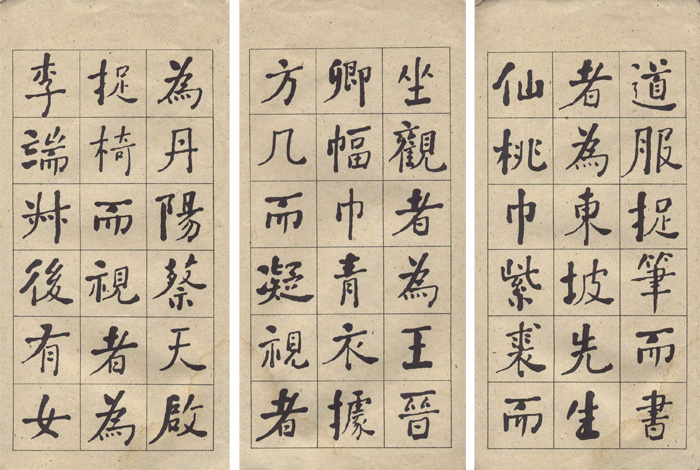 道服捉筆而書
者為東坡先生
仙桃巾紫裘而
坐觀者為王晉
卿幅巾青衣據
方几而凝視者
為丹陽蔡天啟
捉椅而視者為
李端叔後有女